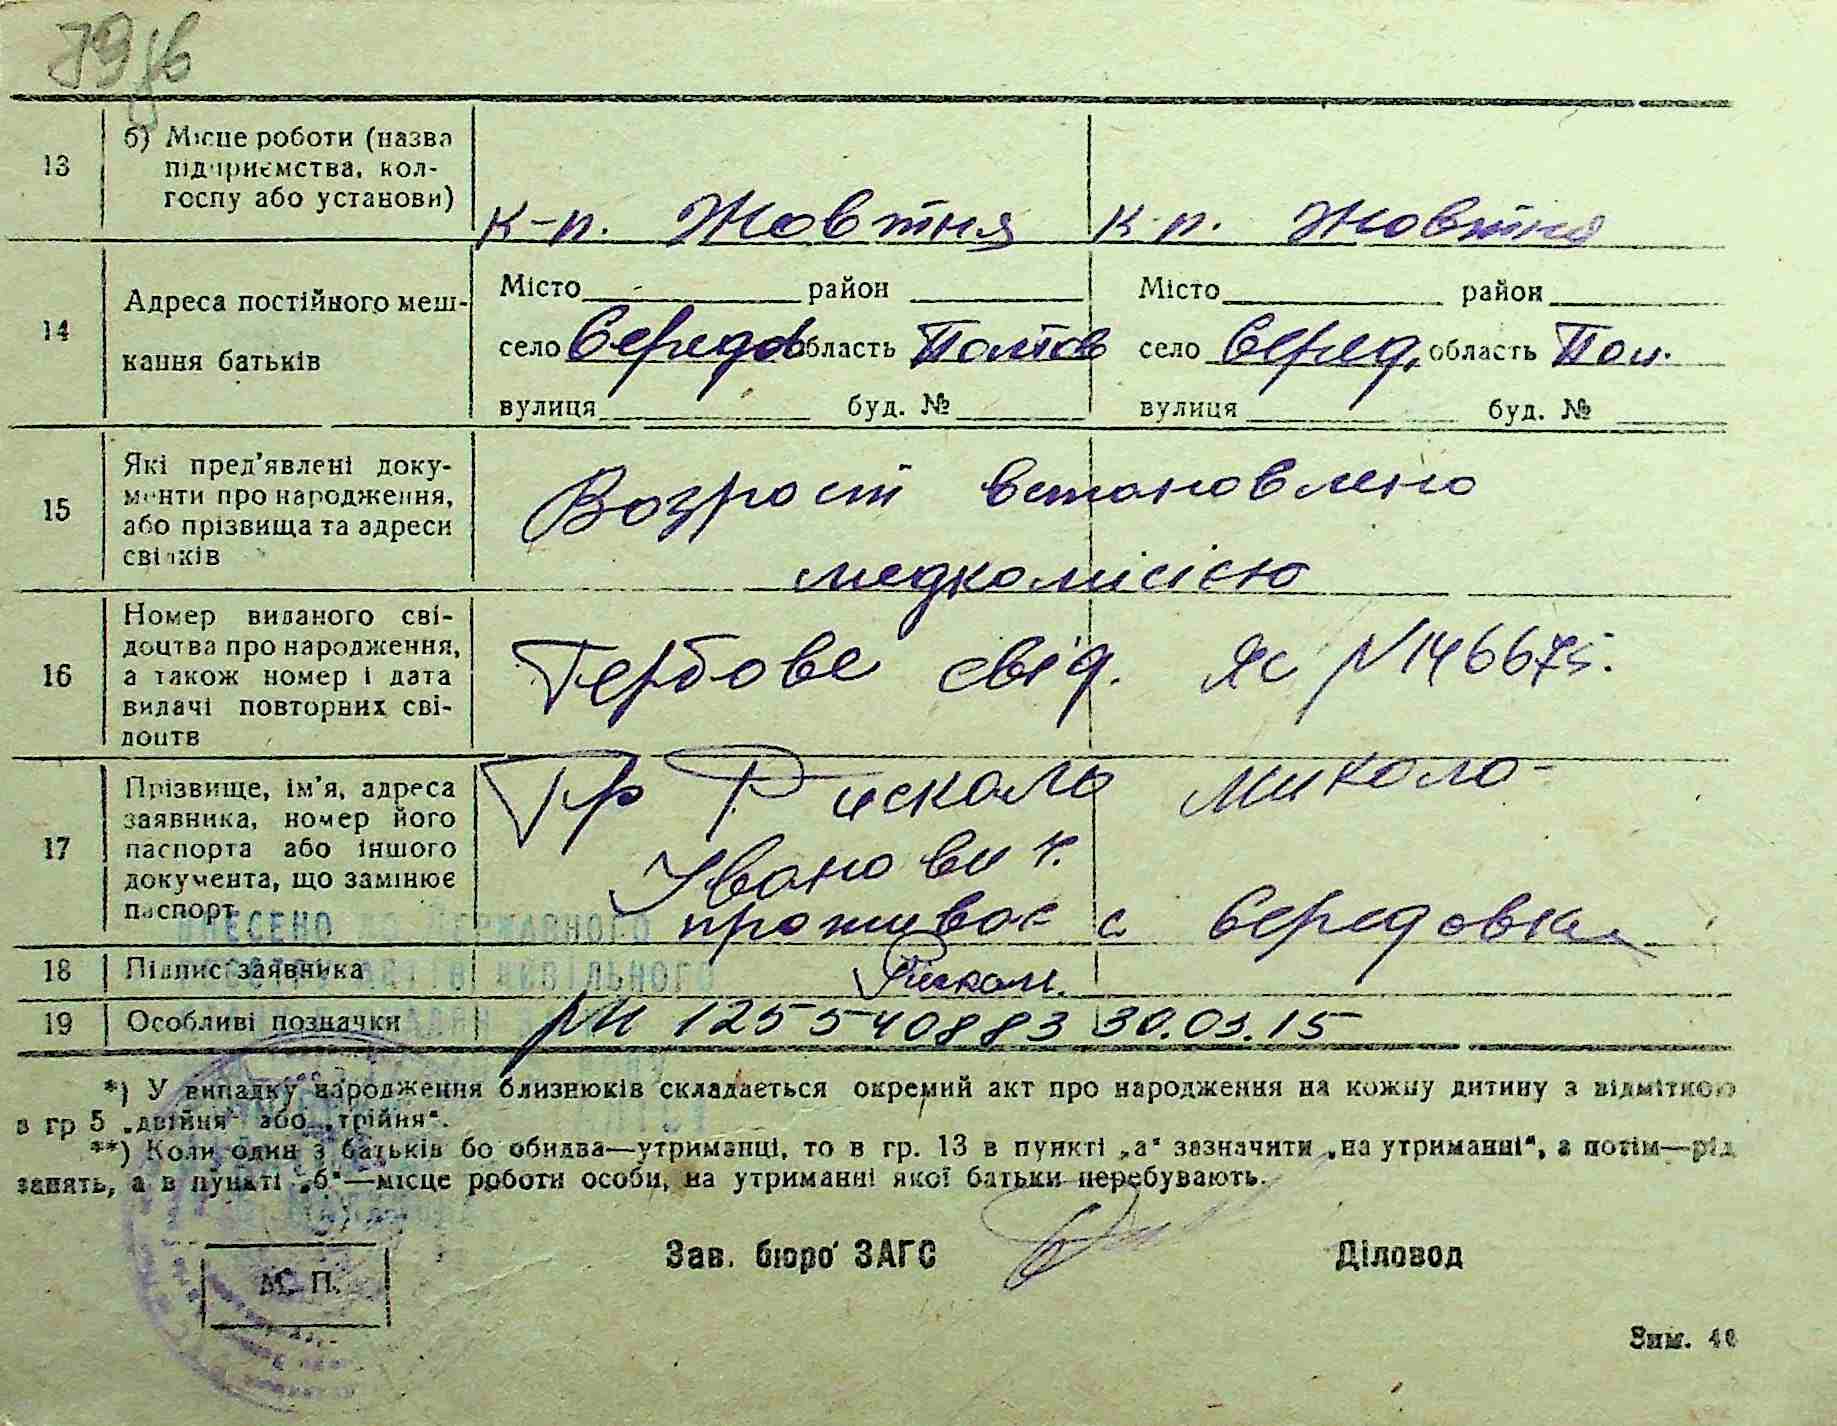 13 б) Місце роботи (назва
підприємства, кол-
госпу або установи)
к-п. Жовтня к-п. Жовтня
14 Адреса постійного меш-
кання батьків
Місто район Місто район
село Середов область Полтов село Серед. область Пол.
вулиця буд. № вулиця буд. №
15 Які пред'явлені доку-
менти про народження,
або прізвища та адреси
свідків
Возраст встановлено
медкомісією
16 Номер виданого сві-
доцтва про народження,
а також номер і дата
видачі повторних сві-
доцтв
Гербове свід. ЯС N 146675.
17 Прізвище, ім'я, адреса
заявника, номер його
паспорта або іншого
документа, що замінює
паспорт
Гр Рискаль Микола
Іванович.
проживає с Середовка
ВНЕСЕНО ДО ДЕРЖАВНОГО
РЕЄСТРУ АКТІВ ЦИВІЛЬНОГО
18 Підпис заявника
19 Особливі позначки 125540883 30.03.15
*) У випадку народження близнюків складається окремий акт про народження на кожну дитину з відміткою
в гр 5 „двійня" або „трійня".
**) Коли один з батьків бо обидва—утриманці, то в гр. 13 в пункті „а" зазначити „на утриманні", а потім—рід
занять, а в пункті „б"—місце роботи особи, на утриманні якої батьки перебувають.
Зав. бюро ЗАГС Діловод
М. П.